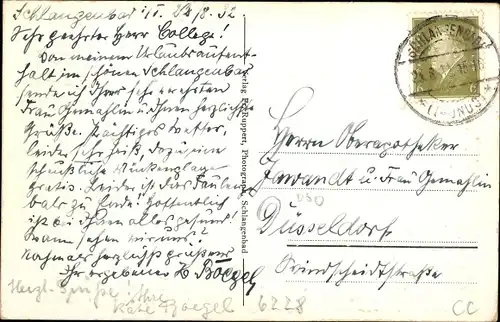 Schlangenbad i/T. 24/8. 32.
Sehr geehrter Herr College!
Von meinem Urlaubsaufent-
halt im schönen Schlangenbad
sende ich Ihrer sehr verehrten
Frau Gemahlin u. Ihnen herzliche
Grüße. Prächtiges Wetter,
leider sehr heiß, dazu eine
scheußliche Mückenplage
gratis. Leider ist das Faulen
bald zu Ende! Hoffentlich
ist b. Ihnen alles gesund!
Wann sehen wir uns?
Nochmals herzlichst grüßend
Ihr ergebener Boegel,
Herzl. Grüße! Ihre
Käte Boegel
Verlag P. Ruppert, Photograph, Schlangenbad
SCHLANGENBAD
(TAUNUS)
6
Herrn Oberapotheker
u. Frau Gemahlin
Düsseldorf
Windscheidtstraße
6228
CC